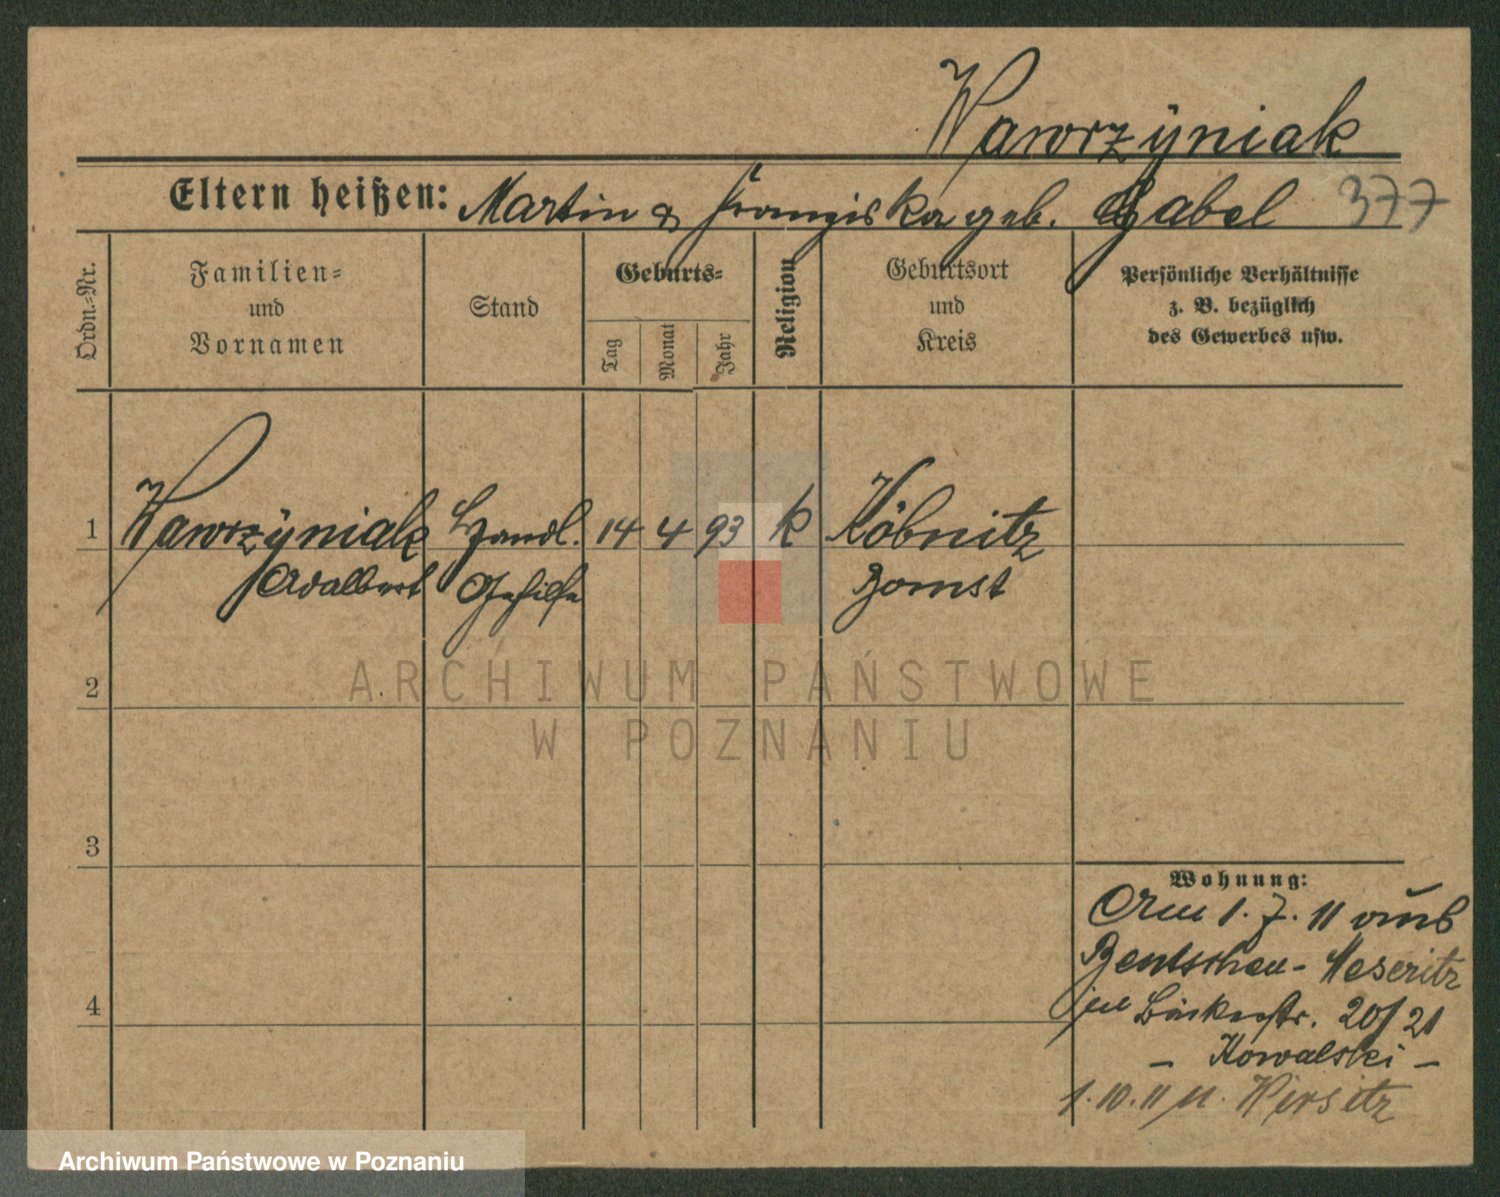 Wawrzÿniak
Eltern heißen: Martin & Franziska geb. Gabel 377
Ordn.-Nr.
Familien-
und
Vornamen
Stand
Geburts-
Tag
Monat
Jahr
Religion
Geburtsort
und
Kreis
Persönliche Verhältnisse
z. B. bezüglich
des Gewerbes usw.
1 Wawrzÿniak Handl. 14 4 93 k Köbnitz
Adalbert Gehilfe Bomst
ARCHIWUM PAŃSTWOWE
W POZNANIU
2
3
4
Wohnung:
1. 7. 11
Bentschen - Meseritz
Bäckerstr. 20/21
- Kowalski -
1. 10. 11 n. Wirsitz
Archiwum Państwowe w Poznaniu